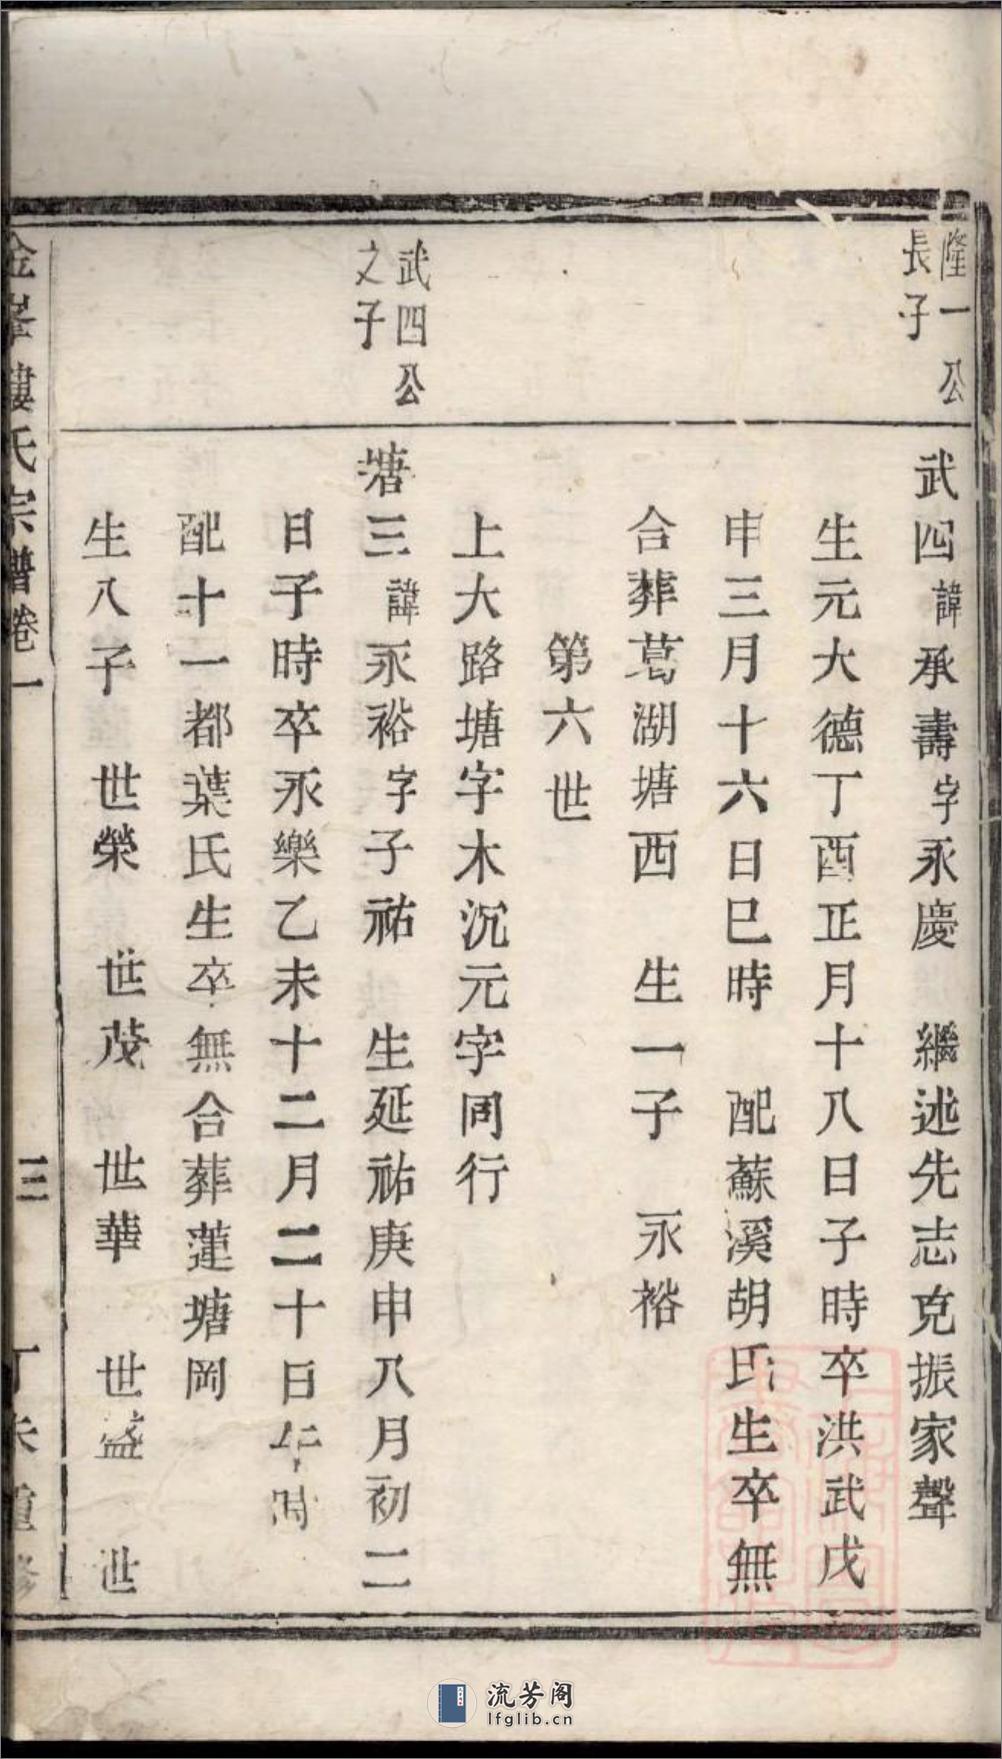 隆一公
長子
武四諱承壽字永慶　繼述先志克振家聲
生元大德丁酉正月十八日子時卒洪武戊
申三月十六日巳時　配蘇溪胡氏生卒無
合葬葛湖塘西　生一子　永裕
第六世
上大路塘字木沉元字同行
武四公
之子
塘三諱永裕字子祐　生延祐庚申八月初二
日子時卒永樂乙未十二月二十日午時
配十一都葉氏生卒無合葬蓮塘岡
生八子　世榮　世茂　世華　世盛　世
金峯樓氏宗譜卷一　三　丁未重修
流芳阁
lfglib.cn